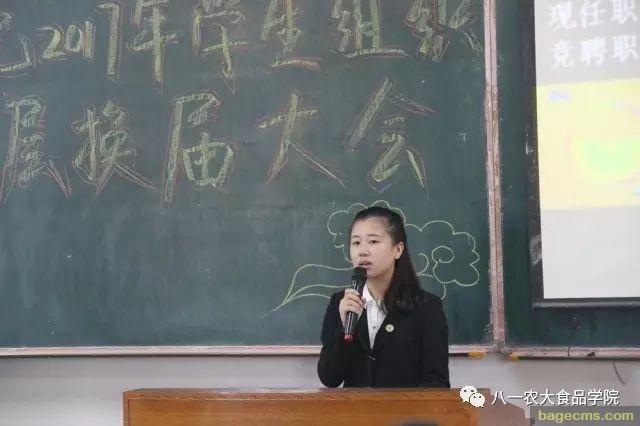 2017年学生组织
属换届大会
现任职
竞聘职
八一农大食品学院
bagecms.com